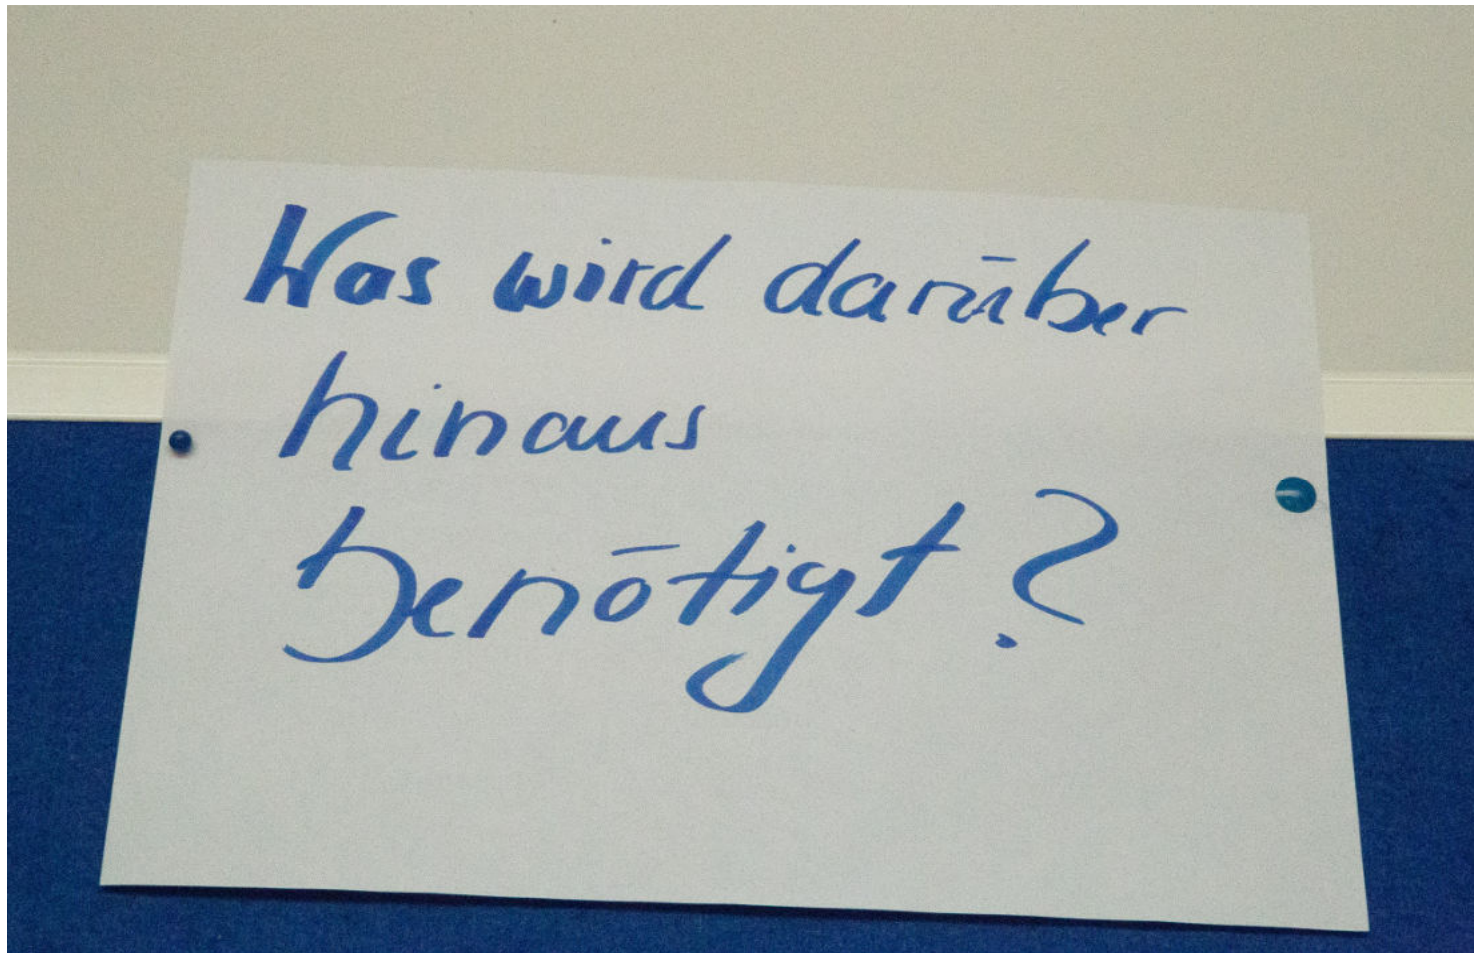 Was wird darüber
hinaus
benötigt?